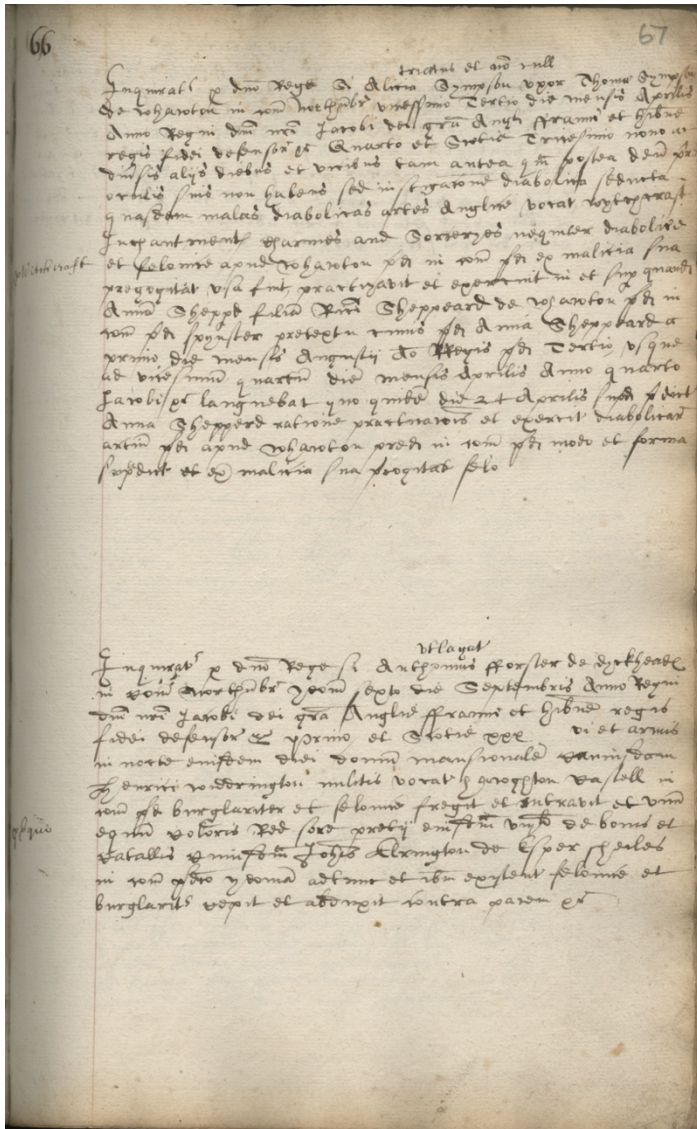 66
67
et non null
Inquirat p dno Rege Si Alicia Sympson uxor Thome Sympson
de Whawton in com Northubr vicessimo Tertio die mensis Aprilis
Anno Regni dni nri Jacobi dei gra Angli ffranni et Hibne
regis fidei defensor Quarto et Scotie Tricesimo nono ac
diusis alijs diebus et vicibus tam antea qm postea deu pr
oculis suis non habens sed instigatone diabolica seducta
quasdam malas diabolicas artes Anglice vocat wytchcrast
Inchantment charmes and Sorceryes nequiter diabolice
Witchcraft
et felonice apud Whawton pd in com pd ex malicia sua
precogitat usa fuit practizavit et exercuit in et sup quand
Anna Shepp filia Rici Sheppeard de Whawton pd in
com pd spynster pretextu cuius pd Anna Sheppeard a
primo die mensis Augustij Ao Regis pd Tertio usque
ad vicesimum quartum diem mensis Aprilis Anno quarto
Jacobi languebat quo quidem die 24 Aprilis sup pdict
Anna Shepperd ratione practicatois et exercit diabolicar
artiu pd apud Whawton pred in com pd modo et forma
supdict et ex malicia sua precogitat felo
Utlagat
Inquirat p dno Rege si Anthonius fforster de
in Com Northubr yeom sexto die Septembris Anno Regni
dni nri Jacobi dei gra Anglie ffranni et Hibne regis
fidei defensor &c Primo et Scotie xxx vi et armis
in nocte eiusdem diei domum mansionale cuiusdam
Henrici Widdrington militis vocat Castell in
com pd burglariter et felonice fregit et intravit et unu
equum coloris Red sore pretij de bonis et
Catallis cuiusdam Johis Elrington de Esper sheiles
in com pdco yeoman adtunc et ibm existent felonice et
burglarit cepit et abduxit contra pacem